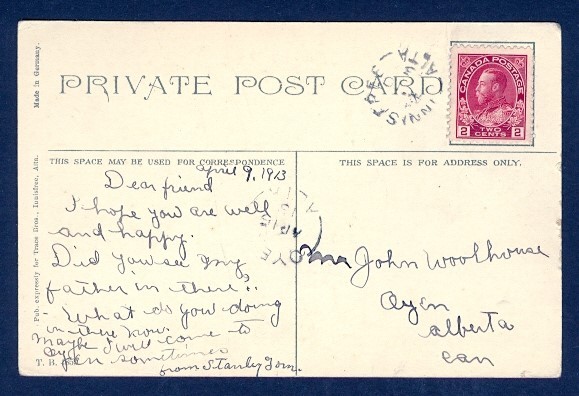 Made in Germany.
PRIVATE POST CARD
CANADA POSTAGE
2 TWO CENTS 2
ALTA
THIS SPACE MAY BE USED FOR CORRESPONDENCE
THIS SPACE IS FOR ADDRESS ONLY.
april 9, 1913
Dear friend
I hope you are well
and happy.
Did you see my
father in there?
What do you doing
in there now.
Maybe I will come to
Oyen sometimes
from Stanley
John Woolhouse
Oyen
alberta
can
Pub. expressly for Trace Bros., Alta.
T. B.